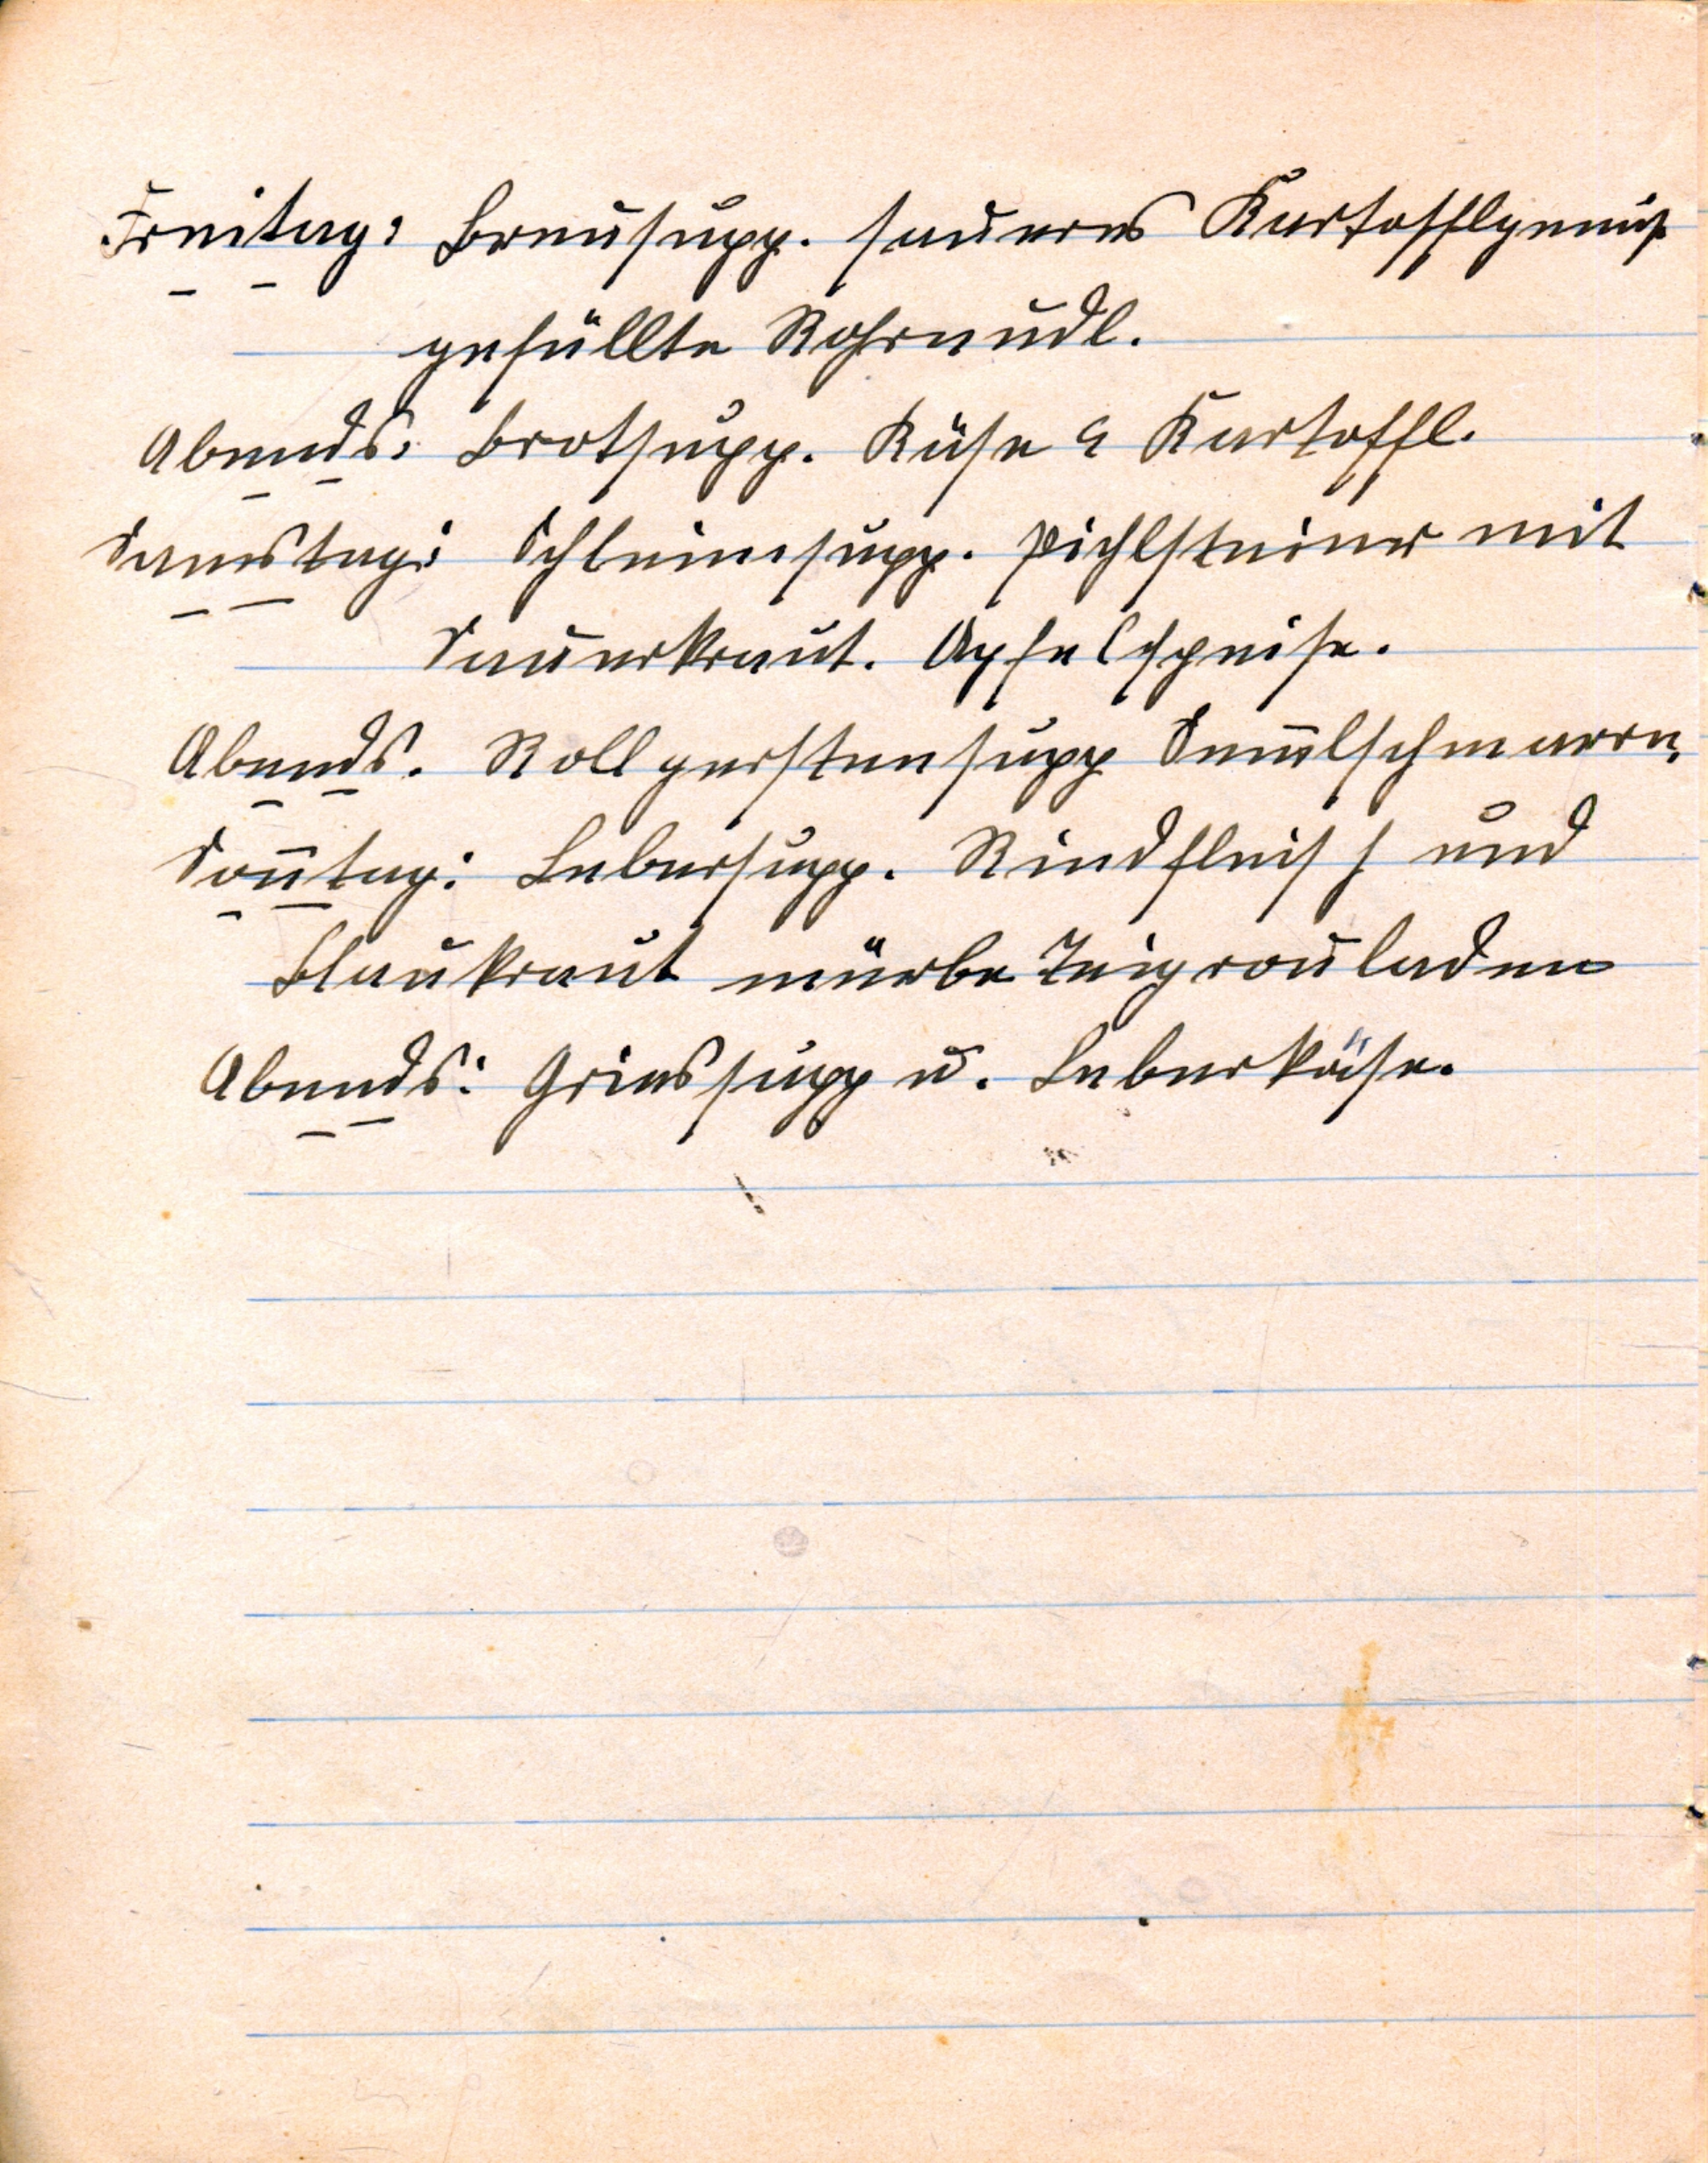 Freitag: Breusupp. saueres Kartofflgemüs
gefüllte Rohrnudl.
Abends: Brotsupp. Käse & Kartoffl.
Samstag: Schleimsupp. Pichlsteiner mit
Sauerkraut. Apfelspeise.
Abends. Rollgerstensupp Sem̅lschmarrn.
Son̅tag: Lebersupp. Rindfleisch und
Blaukraut mürbe Teigrouladen
Abends: Griessupp u. Leberkäse.